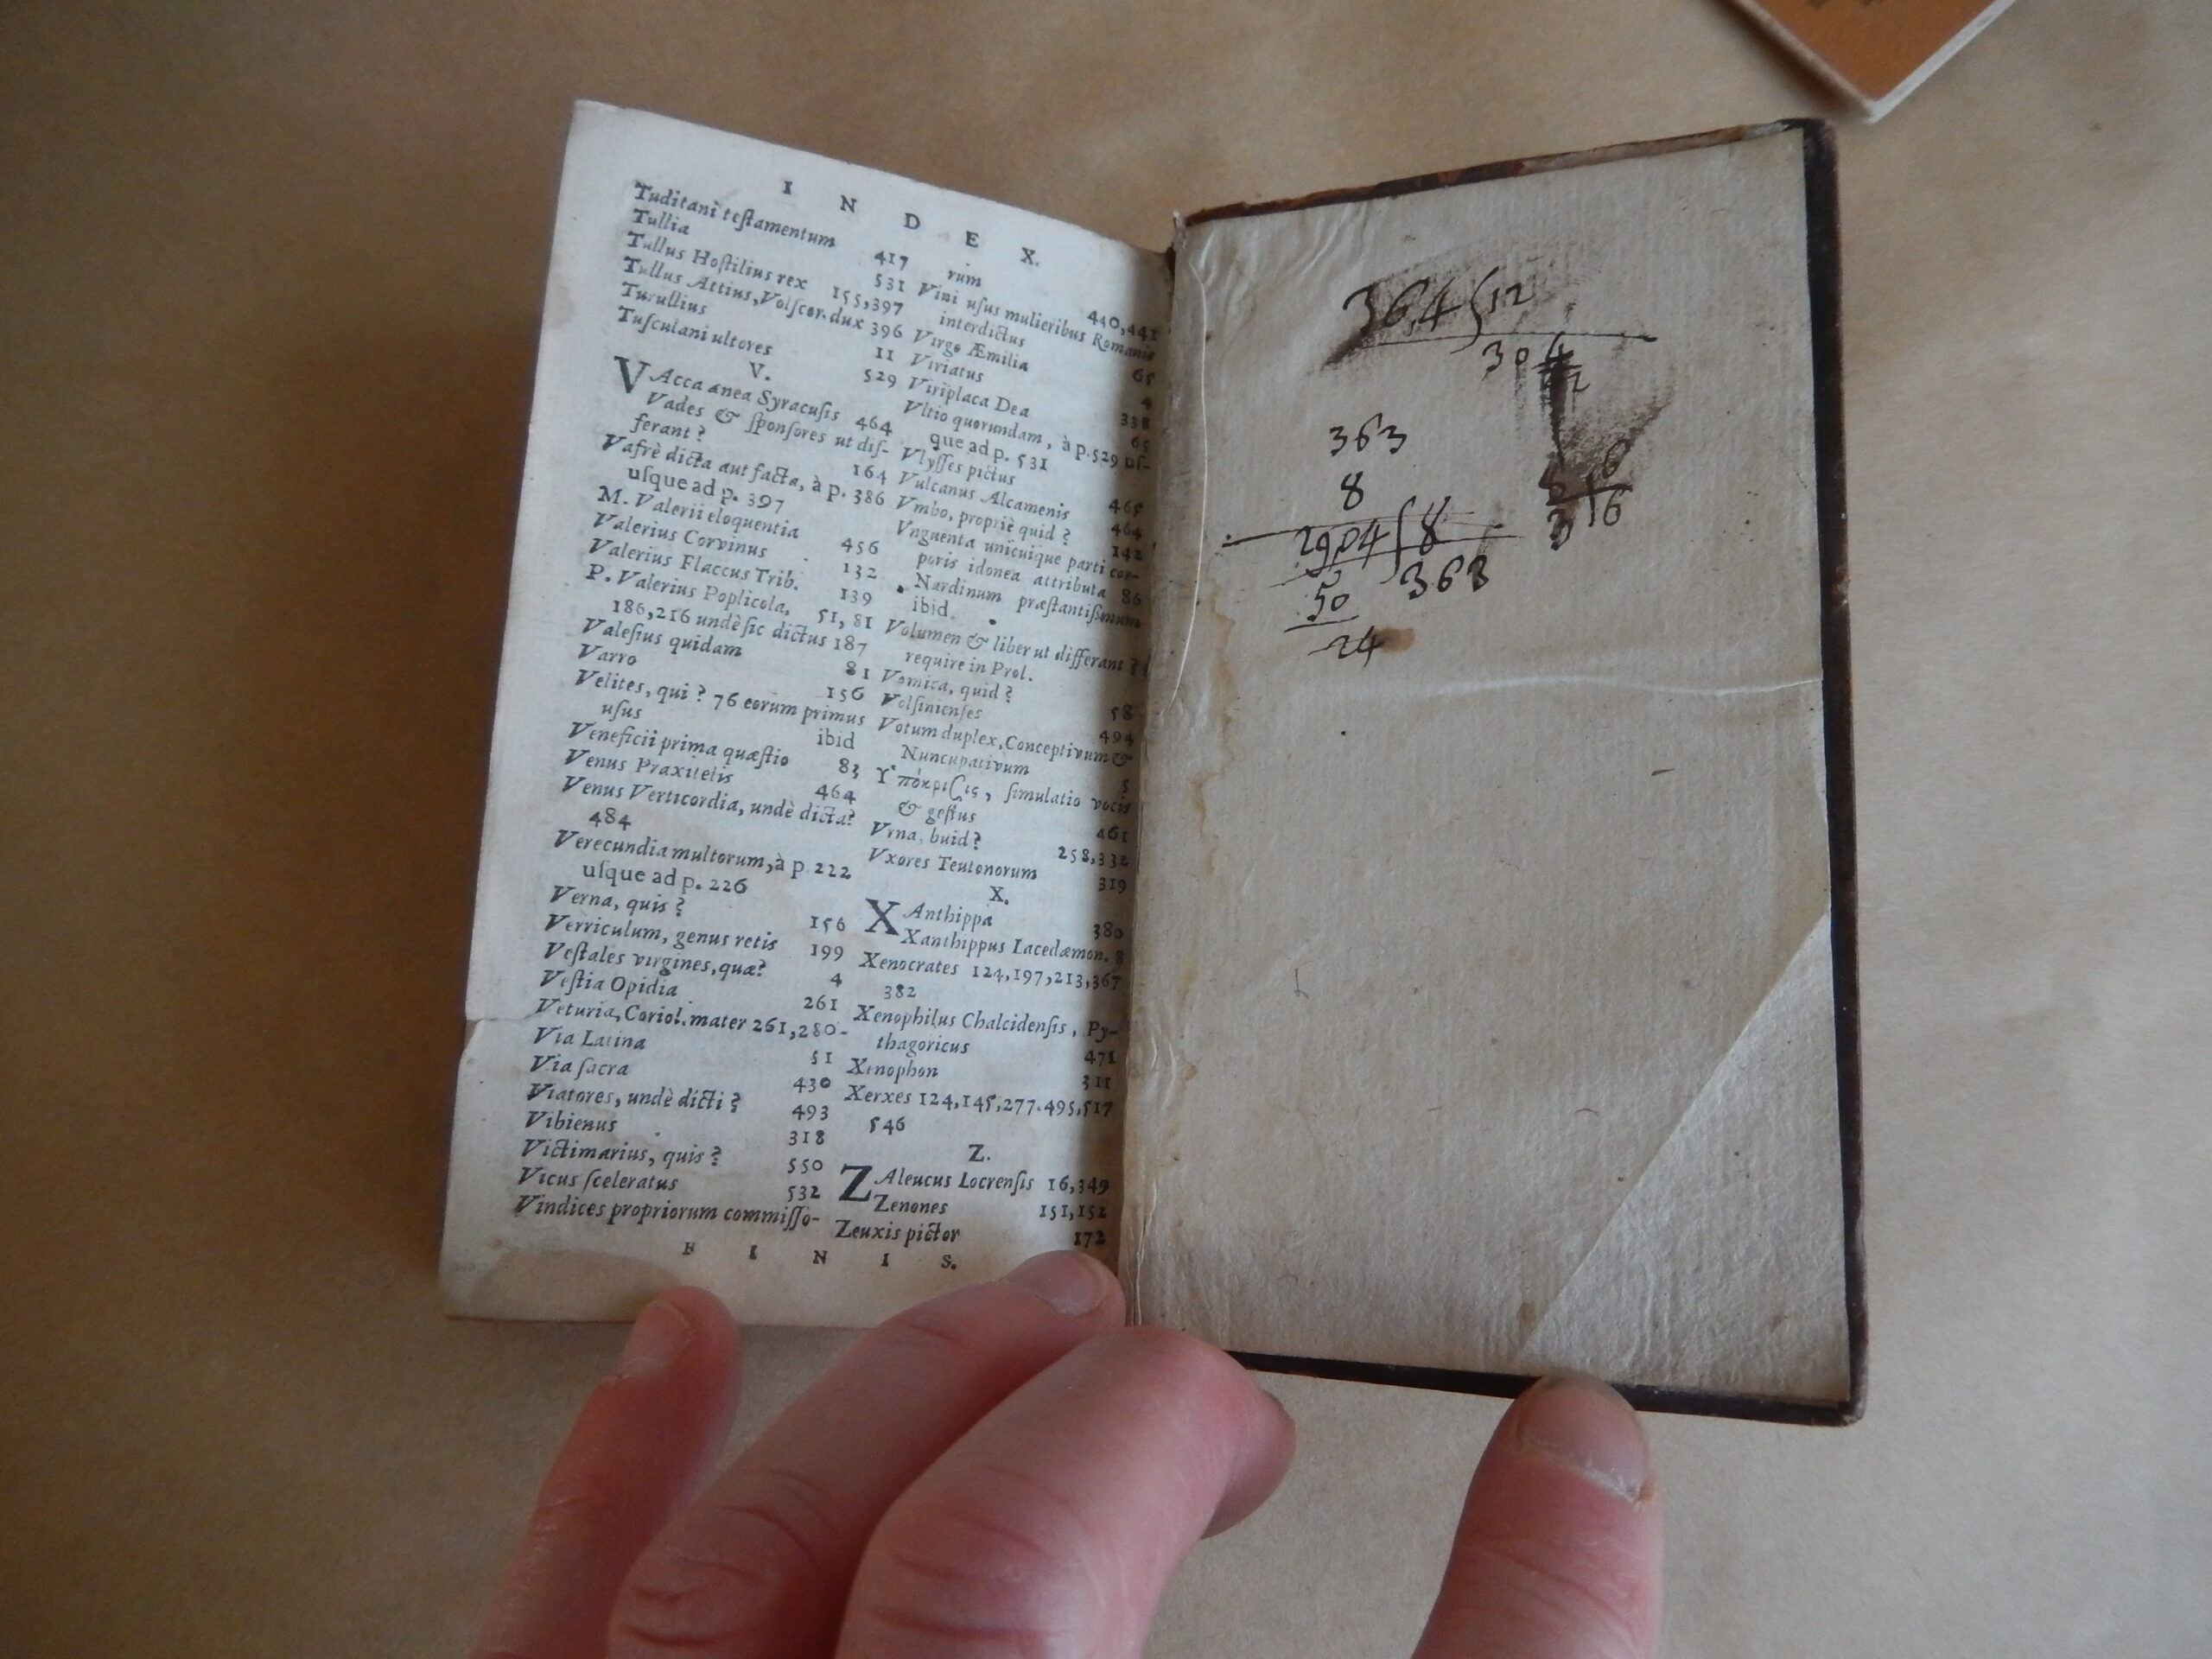 I N D E X.
Tuditani teſtamentum 417
Tullia 531
Tullus Hoſtilius rex 155,397
Tullus Attius, Volſcor. dux 396
Turullius 11
Tuſculani ultores 529
V.
VAcca ænea Syracuſis 464
Vades & ſponſores ut dif-
ferant? 164
Vafrè dicta aut facta, à p. 386
uſque ad p. 397
M. Valerii eloquentia 456
Valerius Corvinus 132
Valerius Flaccus Trib. 139
P. Valerius Poplicola, 51, 81
186,216 undè ſic dictus 187
Valeſius quidam 81
Varro 156
Velites, qui? 76 eorum primus
uſus ibid
Veneficii prima quæſtio 83
Venus Praxitelis 464
Venus Verticordia, undè dicta?
484
Verecundia multorum, à p 222
uſque ad p. 226
Verna, quis? 156
Verriculum, genus retis 199
Veſtales virgines, quæ? 4
Veſtia Opidia 261
Veturia, Coriol. mater 261,280-
Via Latina 51
Via ſacra 430
Viatores, undè dicti? 493
Vibienus 318
Victimarius, quis? 550
Vicus ſceleratus 532
Vindices propriorum commiſſo-
rum 440,441
Vini uſus mulieribus Romanis
interdictus 65
Virgo Æmilia 4
Viriatus 338
Viriplaca Dea 65
Vltio quorundam, à p. 529 uſ-
que ad p. 531
Vlyſſes pictus 465
Vulcanus Alcamenis 464
Vmbo, propriè quid? 142
Vnguenta unicuique parti cor-
poris idonea attributa 86
Nardinum præſtantiſſimum
ibid.
Volumen & liber ut differant?
require in Prol.
Vomica, quid? 58
Volſinienſes 494
Votum duplex, Conceptivum &
Nuncupativum 5
Ὑπόκρισις, ſimulatio vocis
& geſtus 461
Vrna, buid? 258,332
Vxores Teutonorum 319
X.
XAnthippa 380
Xanthippus Lacedæmon. 8
Xenocrates 124,197,213,367
382
Xenophilus Chalcidenſis, Py-
thagoricus 471
Xenophon 311
Xerxes 124,145,277.495,517
546
Z.
ZAleucus Locrenſis 16,349
Zenones 151,152
Zeuxis pictor 172
F I N I S.
364 12
304
363
8
2904 8
50 363
24
6
3 6